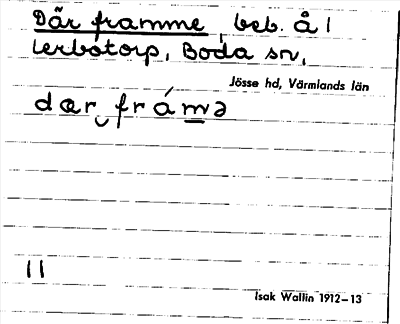 Där framme, beb. å l
lerbotorp, Boda sn,
Jösse hd, Värmlands län
dær‿frámə
11
Isak Wallin 1912–13